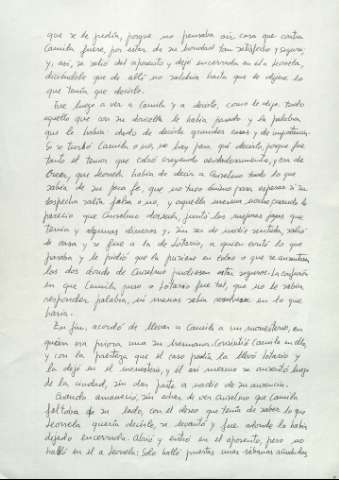 que se le pedía, porque no pensaba oír cosa que contra
Camila fuese, por estar de su bondad tan satisfecho y seguro;
y, así, se salió del aposento y dejó encerrada en él a Leonela,
diciéndole que de allí no saldría hasta que le dijese lo
que tenía que decirle.
Fue luego a ver a Camila y a decirle, como le dijo, todo
aquello que con su doncella le había pasado y la palabra
que le había dado de decirle grandes cosas y de importancia.
Si se turbó Camila o no, no hay para qué decirlo, porque fue
tanto el temor que cobró creyendo verdaderamente, y era de
creer, que Leonela había de decir a Anselmo todo lo que
sabía de su poca fe, que no tuvo ánimo para esperar si su
sospecha salía falsa o no, y aquella mesma noche, cuando le
pareció que Anselmo dormía, juntó las mejores joyas que
tenía y algunos dineros y, sin ser de nadie sentida, salió
de casa y se fue a la de Lotario, a quien contó lo que
pasaba y le pidió que la pusiese en cobro o que se ausentasen
los dos donde de Anselmo pudiesen estar seguros. La confusión
en que Camila puso a Lotario fue tal, que no le sabía
responder palabra, ni menos sabía resolverse en lo que
haría.
En fin, acordó de llevar a Camila a un monesterio, en
quien era priora una su hermana. Consintió Camila en ello,
y con la presteza que el caso pedía la llevó Lotario y
la dejó en el monesterio, y él así mesmo se ausentó luego
de la ciudad, sin dar parte a nadie de su ausencia.
Cuando amaneció, sin echar de ver Anselmo que Camila
faltaba de su lado, con el deseo que tenía de saber lo que
Leonela quería decirle, se levantó y fue adonde la había
dejado encerrada. Abrió y entró en el aposento, pero no
halló en él a Leonela: Solo halló puestas unas sábanas añudadas